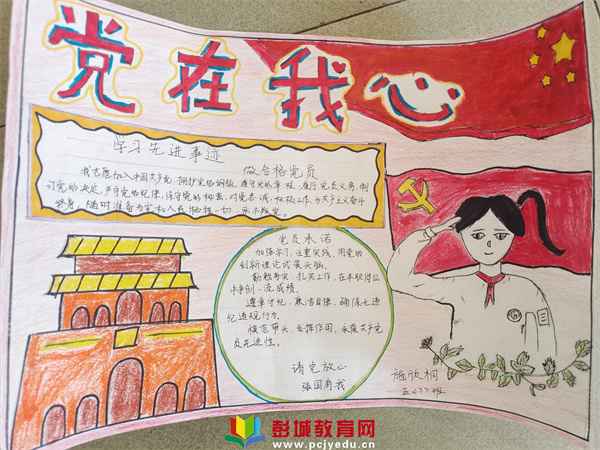 党在我心
学习先进事迹
做合格党员
我志愿加入中国共产党，拥护党的纲领，遵守党的章程，履行党员义务，执
行党的决定，严守党的纪律，保守党的秘密，对党忠诚，积极工作，为共产主义奋斗
终身，随时准备为党和人民牺牲一切，永不叛党。
党员承诺
加强学习，注重实践，用党的
创新理论武装头脑。
勤勉务实，扎实工作，在本职岗位
中争创一流成绩。
遵章守纪，廉洁自律，确保无违
纪违规行为。
模范带头，发挥作用，永葆共产党
员先进性。
请党放心
强国有我
施欣桐
五(7)班
彭城教育网
www.pcjyedu.cn